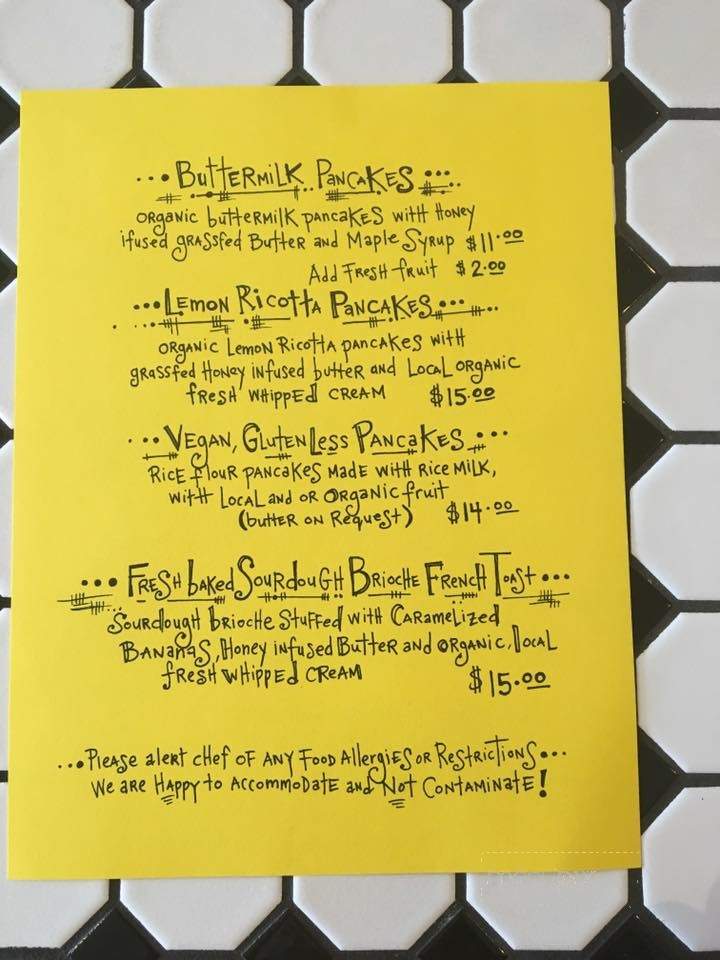 ...Buttermilk Pancakes...
organic buttermilk pancakes with Honey
ifused grassfed Butter and Maple Syrup $11.00
Add Fresh fruit $2.00
...Lemon Ricotta Pancakes...
organic Lemon Ricotta pancakes with
grassfed Honey infused butter and Local organic
fresh whipped cream $15.00
...Vegan, GlutenLess Pancakes...
Rice flour pancakes made with Rice Milk,
with Local and or Organic fruit
(butter on Request) $14.00
...Fresh baked Sourdough Brioche French Toast...
Sourdough brioche Stuffed with Caramelized
Bananas, Honey infused Butter and organic, local
fresh whipped cream $15.00
...Please alert chef of any Food Allergies or Restrictions...
We are Happy to Accommodate and Not Contaminate!